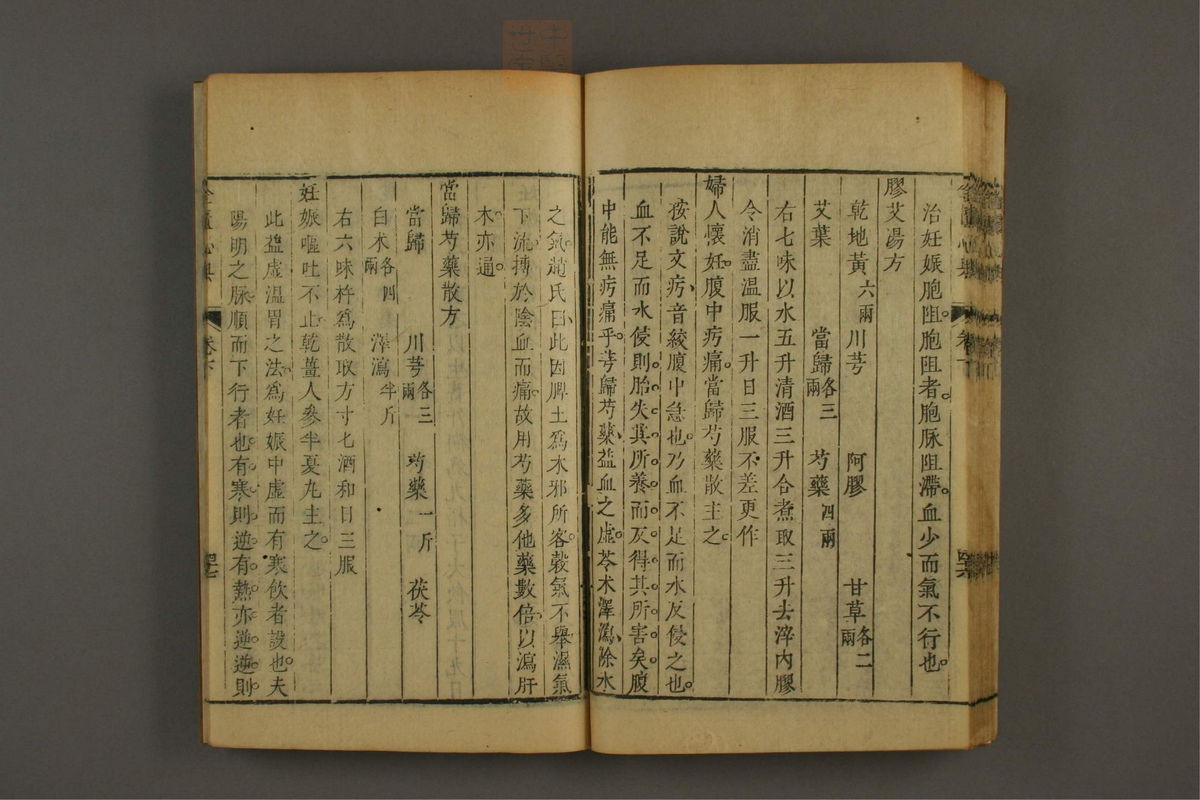 治妊娠胞阻胞阻者胞脉阻滯。血少而氣不行也。
膠艾湯方
乾地黃六兩 川芎 阿膠 甘草各二兩
艾葉 當歸各三兩 芍藥四兩
右七味以水五升清酒三升合煮取三升去滓內膠
令消盡温服一升日三服不差更作
婦人懷妊腹中㽱痛當歸芍藥散主之
按說文㽱音絞腹中急也。乃血不足而水反侵之也。
血不足而水侵則胎失其所養而反得其所害矣腹
中能無㽱痛乎。芎歸芍藥益血之虛。苓朮澤瀉除水
之氣趙氏曰此因脾土為木邪所客。穀氣不舉濕氣
下流搏於陰血而痛。故用芍藥多他藥數倍。以瀉肝
木。亦通。
當歸芍藥散方
當歸 川芎各三兩 芍藥一斤 茯苓
白朮各四兩 澤瀉半斤
右六味杵為散取方寸匕酒和日三服
妊娠嘔吐不止乾薑人參半夏丸主之
此益虛温胃之法為妊娠中虛而有寒飲者設也。夫
陽明之脉順而下行者也有寒則逆有熱亦逆逆則
卷下